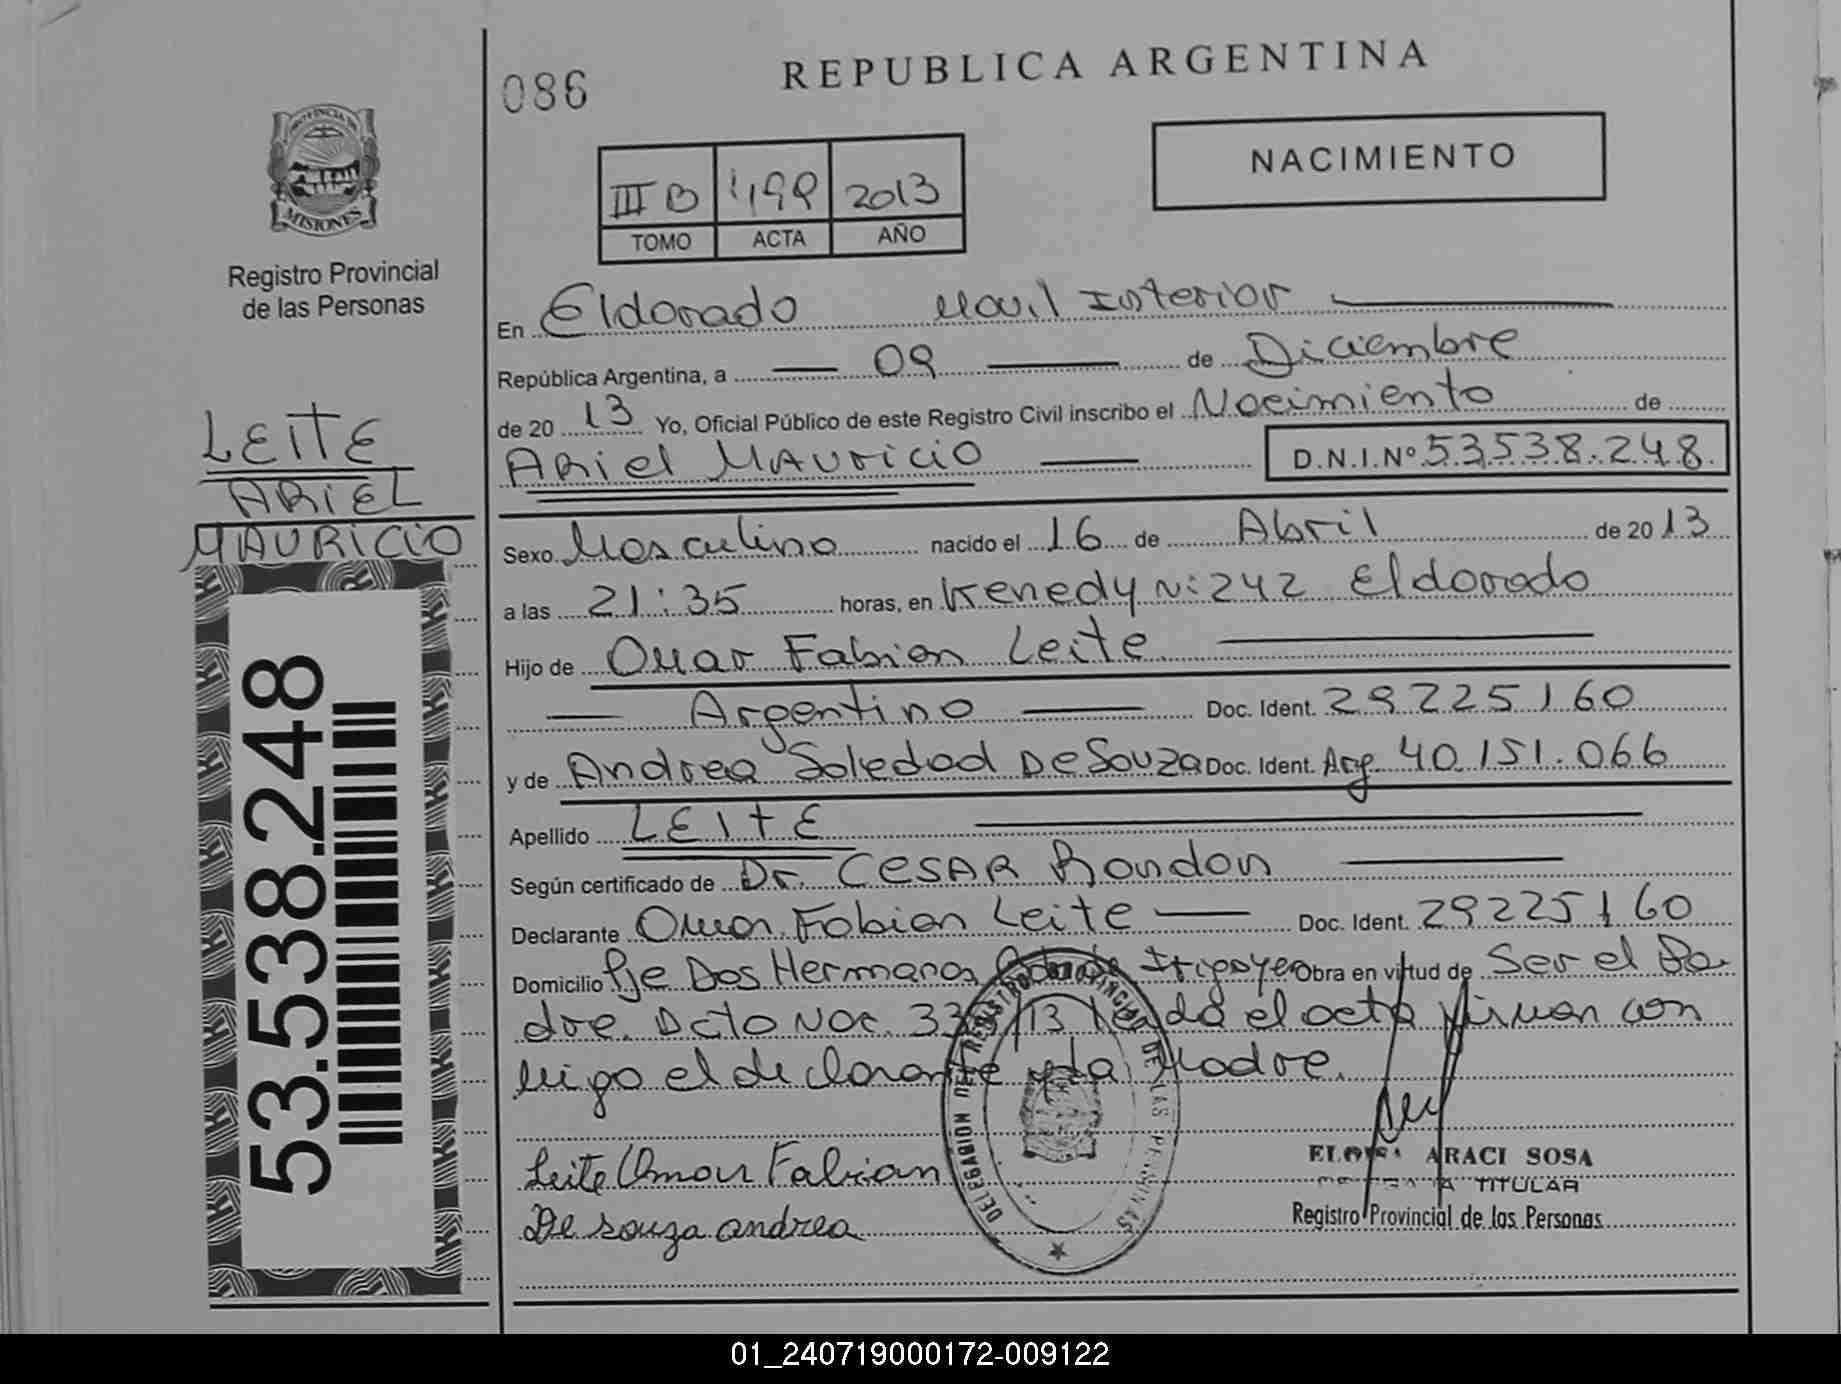 086
REPUBLICA ARGENTINA
NACIMIENTO
III B 2013
TOMO ACTA AÑO
PROVINCIA DE
MISIONES
Registro Provincial
de las Personas
LEITE
ARIEL
MAURICIO
53.538.248
En Eldorado Movil Interior
República Argentina, a 09 de Diciembre
de 20 13 Yo, Oficial Público de este Registro Civil inscribo el Nacimiento de
Ariel Mauricio D.N.I.Nº 53.538.248.
Sexo Masculino nacido el 16 de Abril de 20 13
a las 21:35 horas, en Kenedy Nº 242 Eldorado
Hijo de Omar Fabian Leite
Argentino Doc. Ident. 29225160
y de Andrea Soledad De Souza Doc. Ident. Arg. 40.151.066
Apellido LEITE
Según certificado de Dr. CESAR Rondon
Declarante Omar Fabian Leite Doc. Ident. 29225160
Domicilio Pje Dos Hermanas Irigoyen Obra en virtud de Ser el Pa-
dre. Dcto Nac. /13 Leida el acta firman con
migo el declarante y la Madre.
DELEGACIÓN DEL REGISTRO PROVINCIAL DE LAS PERSONAS
Leite Omar Fabian
De souza andrea
ARACI SOSA
TITULAR
Registro Provincial de las Personas
01_240719000172-009122